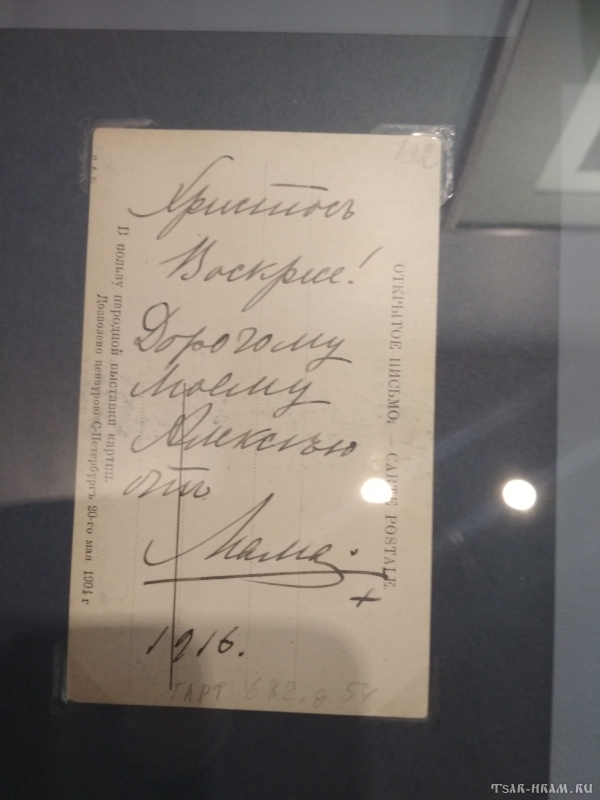 192
Христосъ
Воскресе!
Дорогому
моему
Алексѣю
отъ
Мама.
1916.
ГАРФ 682, д. 54
ОТКРЫТОЕ ПИСЬМО. – CARTE POSTALE.
В пользу народной выставки картин.
Дозволено цензурою С-Петербургъ 20-го мая 1904 г
TSAR-HRAM.RU